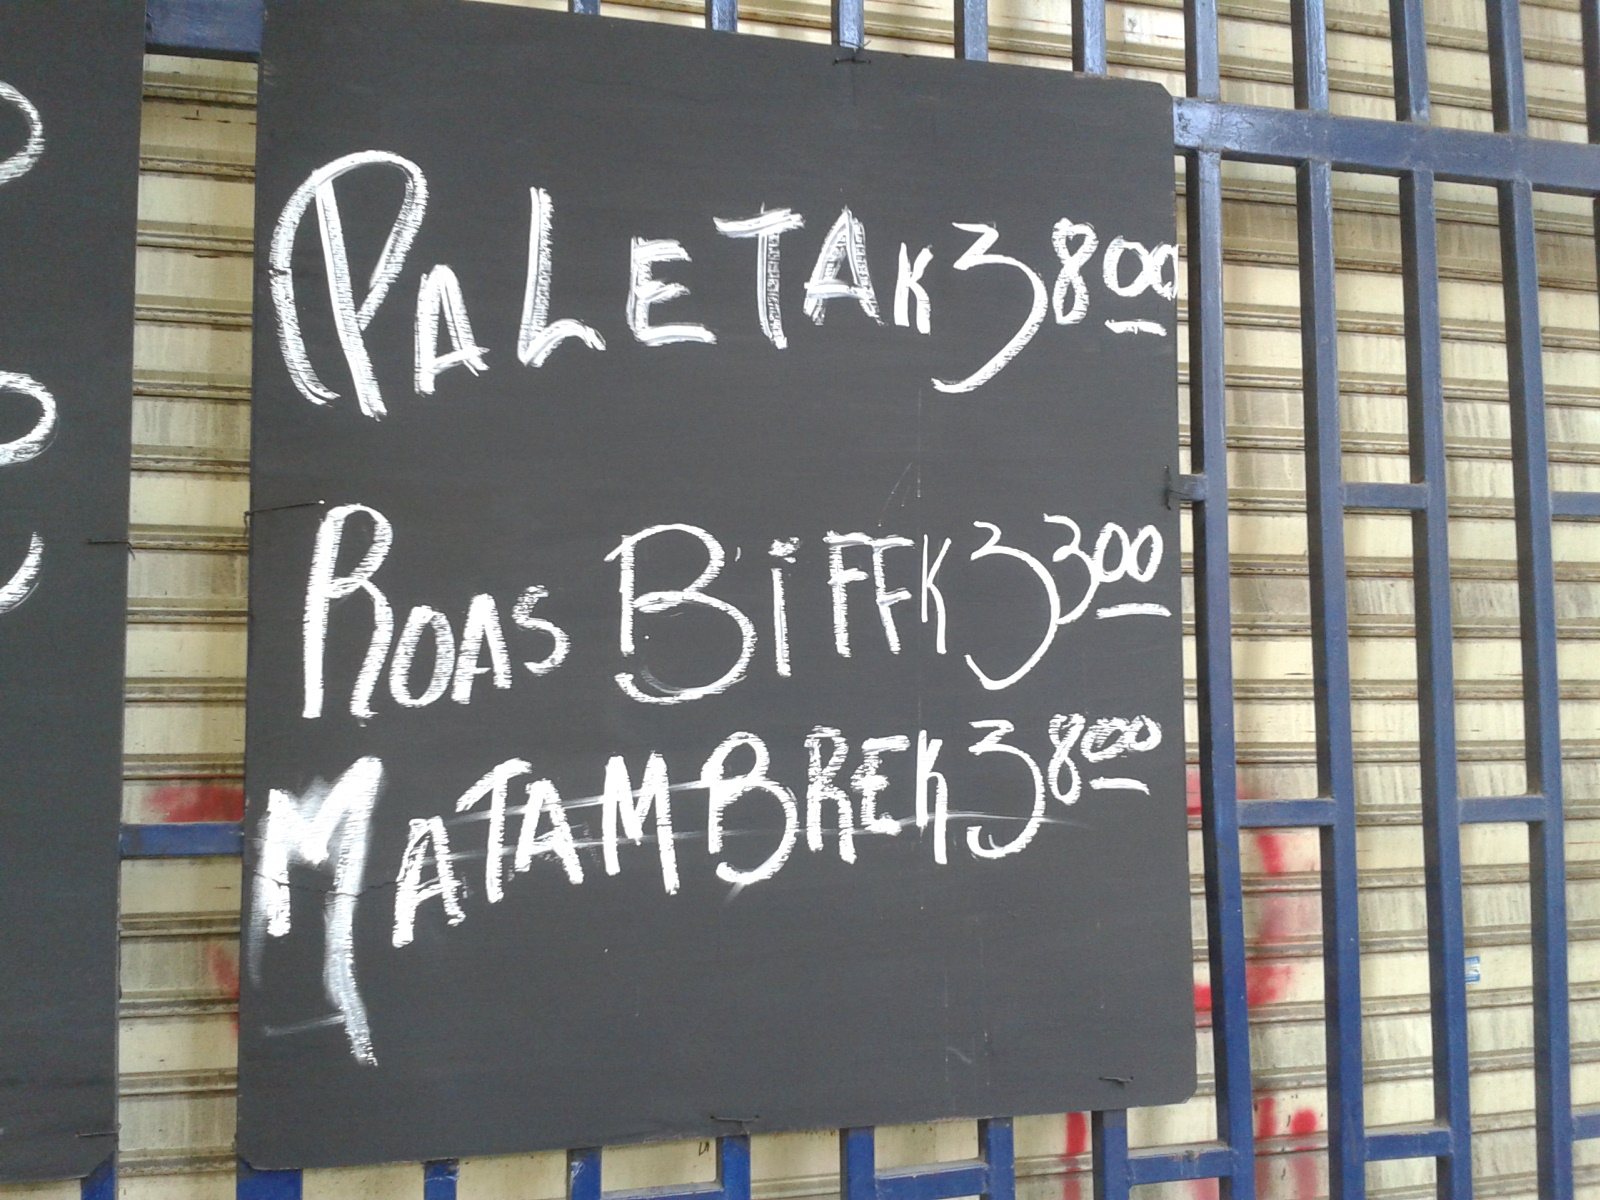 PALETA K 38 00
ROAS BiFF K 33 00
MATAMBRE K 38 00